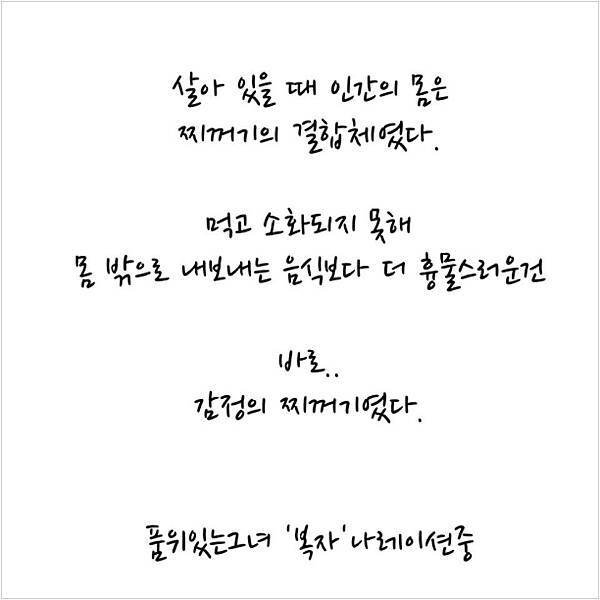 살아 있을 때 인간의 몸은
찌꺼기의 결합체였다.
먹고 소화되지 못해
몸 밖으로 내보내는 음식보다 더 흉물스러운건
바로..
감정의 찌꺼기였다.
품위있는그녀 '복자'나레이션중